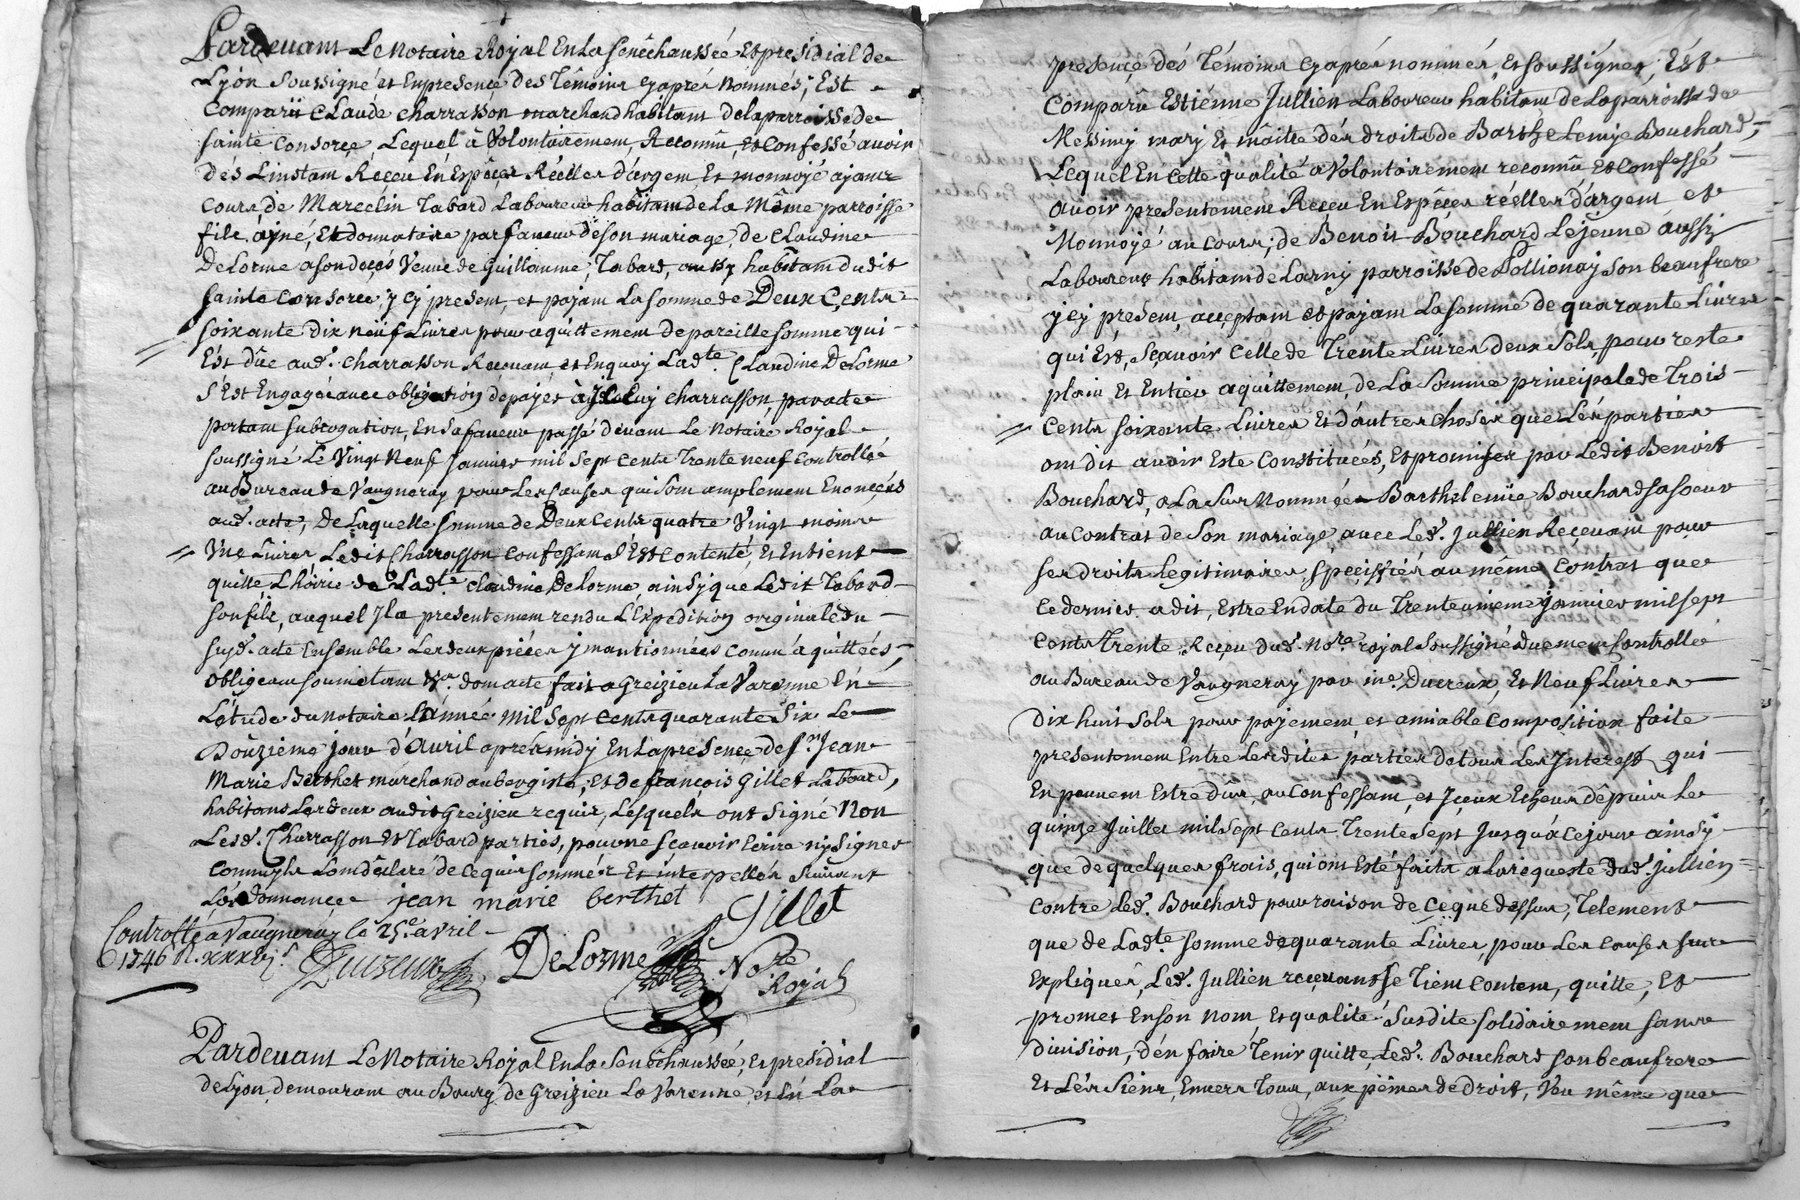 Pardevant Le Notaire Royal En La senêchaussée Et presidial de
Lyon soussigné et En presence des Témoins cyaprés nommés, Est
Comparü Claude charrasson marchand habitant dela parroisse de
sainte Consorce Lequel à Volontairement Reconnu, et Confessé avoir
dés Linstam Receu En Espéces Réélles d'argem Et monnoyé ayant
cours de Mareclin Tabard Laboureur habitam de La Même parroisse
fils ayné, Et donnataire par faveur de son mariage, de Claudine
DeLorme a son deces Veuve de Guillaume Tabard, aussy habitam dudit
sainte Consorce, y Cy present, et payam La somme de Deux Cents
soixante dix neuf Livres pour aquittement de pareille somme qui
Est dûe aud. charrasson Recevam, et Enquoy Lad.te Claudine DeLorme
s'Est Engagée avec obligation depayer à Iceluy charrasson, par acte
portam subrogation, En sa faveur passé devam Le Notaire Royal
soussigné Le Vingt Neuf Janvier mil sept cents Trente neuf Controllé
au Bureau de Vaugneray pour Les causes qui som amplement Enoncées
aud. acte, de Laquelle somme de Deux Cents quatre Vingt moins
Une Livres Ledit Charrasson Confessam s'Est Contenté, Et En tient
quitte L'hoirie de Lad.te Claudine DeLorme, ainsy que Ledit Tabard
son fils, auquel Jl a presentement rendu L'Expedition originale du
susd. acte Ensemble Les deux piéces y mantionnées Comm' áquittées,
obligeam soumetam &.a dom acte fait a Greizieu La Varenne En
L'étude du notaire L'année Mil sept Cents quarante six Le
Douzième jour d'Avril aprés midy En La presence de s.r Jean
Marie Berthet marchand aubergiste, Et de françois Gillet
habitans Les deux audit Greizieu requis, Lesquels ont signé Non
Lesd. Charrasson Et Tabard parties, pour ne scavoir Ecrire ny signer
comm'ils L'om déclaré de Ce quis sommés Et interpellés suivant
L'ordonnance jean marie berthet Gillet
Controllé a Vaugneray le 25.e avril
1746 R.
Ducreux DeLorme No.re
Royal
Pardevant Le Notaire Royal En La Senêchaussée, Et presidial
de Lyon demouram au Bourg de Greizieu La Varenne, et En La
presence dés Témoins Cyaprés nommés, Et soussignés, Est
Comparû Estiénne Jullien Laboureur habitam de La parroisse de
Messimy mary Et maître dés droits de Barthelemye Bouchard,
Lequel En Cette qualité a Volontairement reconnû Et Confessé
avoir presentement Receu En Espéces réélles d'argem et
Monnoyé au Cours, de Benoit Bouchard Lejeune aussy
Laboureur habitam de Larny parroisse de Pollionay son beaufrere
y Cy présent, acceptam et payam La somme de quarante Livres
qui Est, scavoir Celle de Trente Livres deux sols, pour reste
plain Et Entier aquittement, de La somme principale de Trois
Cents soixante Livres Et d'autres choses que Les parties
om dit avoir Esté Constituées, Et promises par Ledit Benoit
Bouchard, a La sus Nommée Barthelemïe Bouchard sa soeur
au Contrat de son mariage avec Led. Jullien Recevam pour
ses droits Legitimaires, specifiés au même Contrat que
Ce dernier a dit, Estre En date du Trente unieme Janvier mil sept
Cents Trente, Receu dud. No.re royal soussigné duemem Controllé
au Bureau de Vaugneray par m.e Ducreux, Et Neuf Livres
Dix huit sols pour payement et amiable Composition faite
presentement Entre Lesdites parties de tous Les Interests qui
En peuvent Estre dus, au Confessam, et Jceux Echeus dépuis Le
quinze Juillet mil sept Cents Trente sept Jusqu'à Cejour ainsy
que de quelques frais, qui om Esté faits a La requeste dud. Jullien
Contre Led. Bouchard pour raison de Ceque dessus, Telement
que de Lad.te somme de quarante Livres, pour Les Causes sus
Expliqueés, Led. Jullien recevant se Tient Contem, quitte, Et
promet En son nom, Et qualité susdite solidairement sans
division, d'en faire Tenir quitte, Led. Bouchard son beaufrere
Et Les siens, Envers Tous, aux peines de Droit, Veu même que